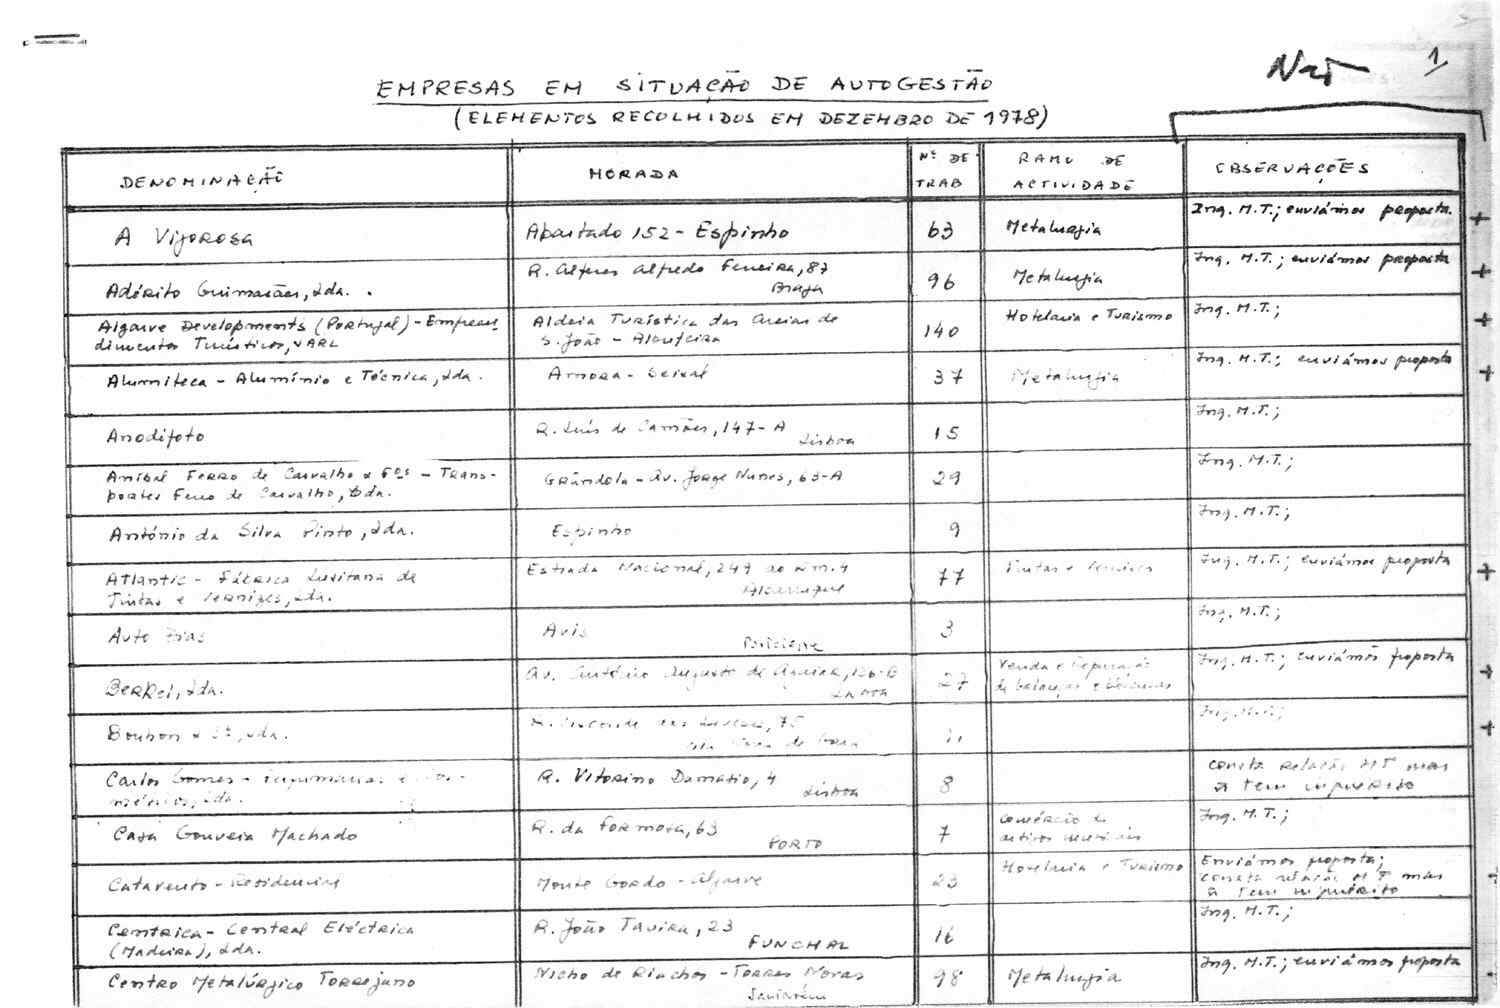 Não 1
EMPRESAS EM SITUAÇÃO DE AUTOGESTÃO
(ELEMENTOS RECOLHIDOS EM DEZEMBRO DE 1978)
DENOMINAÇÃO MORADA Nº DE TRAB RAMO DE ACTIVIDADE OBSERVAÇÕES
A Vigorosa Apartado 152 - Espinho 63 Metalurgia Inq. M.T.; enviámos proposta. +
Adérito Guimarães, Lda. R. Alferes Alfredo Ferreira, 87 Braga 96 Metalurgia Inq. M.T.; enviámos proposta +
Algarve Developments (Portugal) - Empreen-
dimentos Turísticos, SARL Aldeia Turística das Areias de
S. João - Albufeira 140 Hotelaria e Turismo Inq. M.T.; +
Alumiteca - Alumínio e Técnica, Lda. Amora - Seixal 37 Metalurgia Inq. M.T.; enviámos proposta +
Anodifoto R. Luís de Camões, 147-A Lisboa 15 Inq. M.T.;
Aníbal Ferro de Carvalho & Fos - Trans-
portes Ferro de Carvalho, Lda. Grândola - Av. Jorge Nunes, 63-A 29 Inq. M.T.;
António da Silva Pinto, Lda. Espinho 9 Inq. M.T.;
Atlantic - Fábrica Lusitana de
Tintas e Vernizes, Lda. Estrada Nacional, 247 ao Km. 4 77 Tintas e Vernizes Inq. M.T.; enviámos proposta +
Auto Avis 3 Inq. M.T.;
Berkel, Lda. Av. António Augusto de Aguiar, Lisboa 27 Venda e Reparação
de balanças e Inq. M.T.; enviámos proposta +
Lda. 75 Inq. M.T.; +
Carlos Gomes - Lda. R. Vitorino Damasio, 4 Lisboa 8 consta relação MT mas
ñ tem inquérito
Casa Gouveia Machado R. da Formosa, 63 PORTO 7 Comércio de
artigos musicais Inq. M.T.;
Catavento - Residencial Monte Gordo - Algarve 23 Hotelaria e Turismo Enviámos proposta;
consta relação MT mas
ñ tem inquérito
Centrica - Central Eléctrica
(Madeira), Lda. R. João Tavira, 23 FUNCHAL 16 Inq. M.T.;
Centro Metalúrgico Torrejano Nicho de Riachos - Torres Novas Santarém 98 Metalurgia Inq. M.T.; enviámos proposta